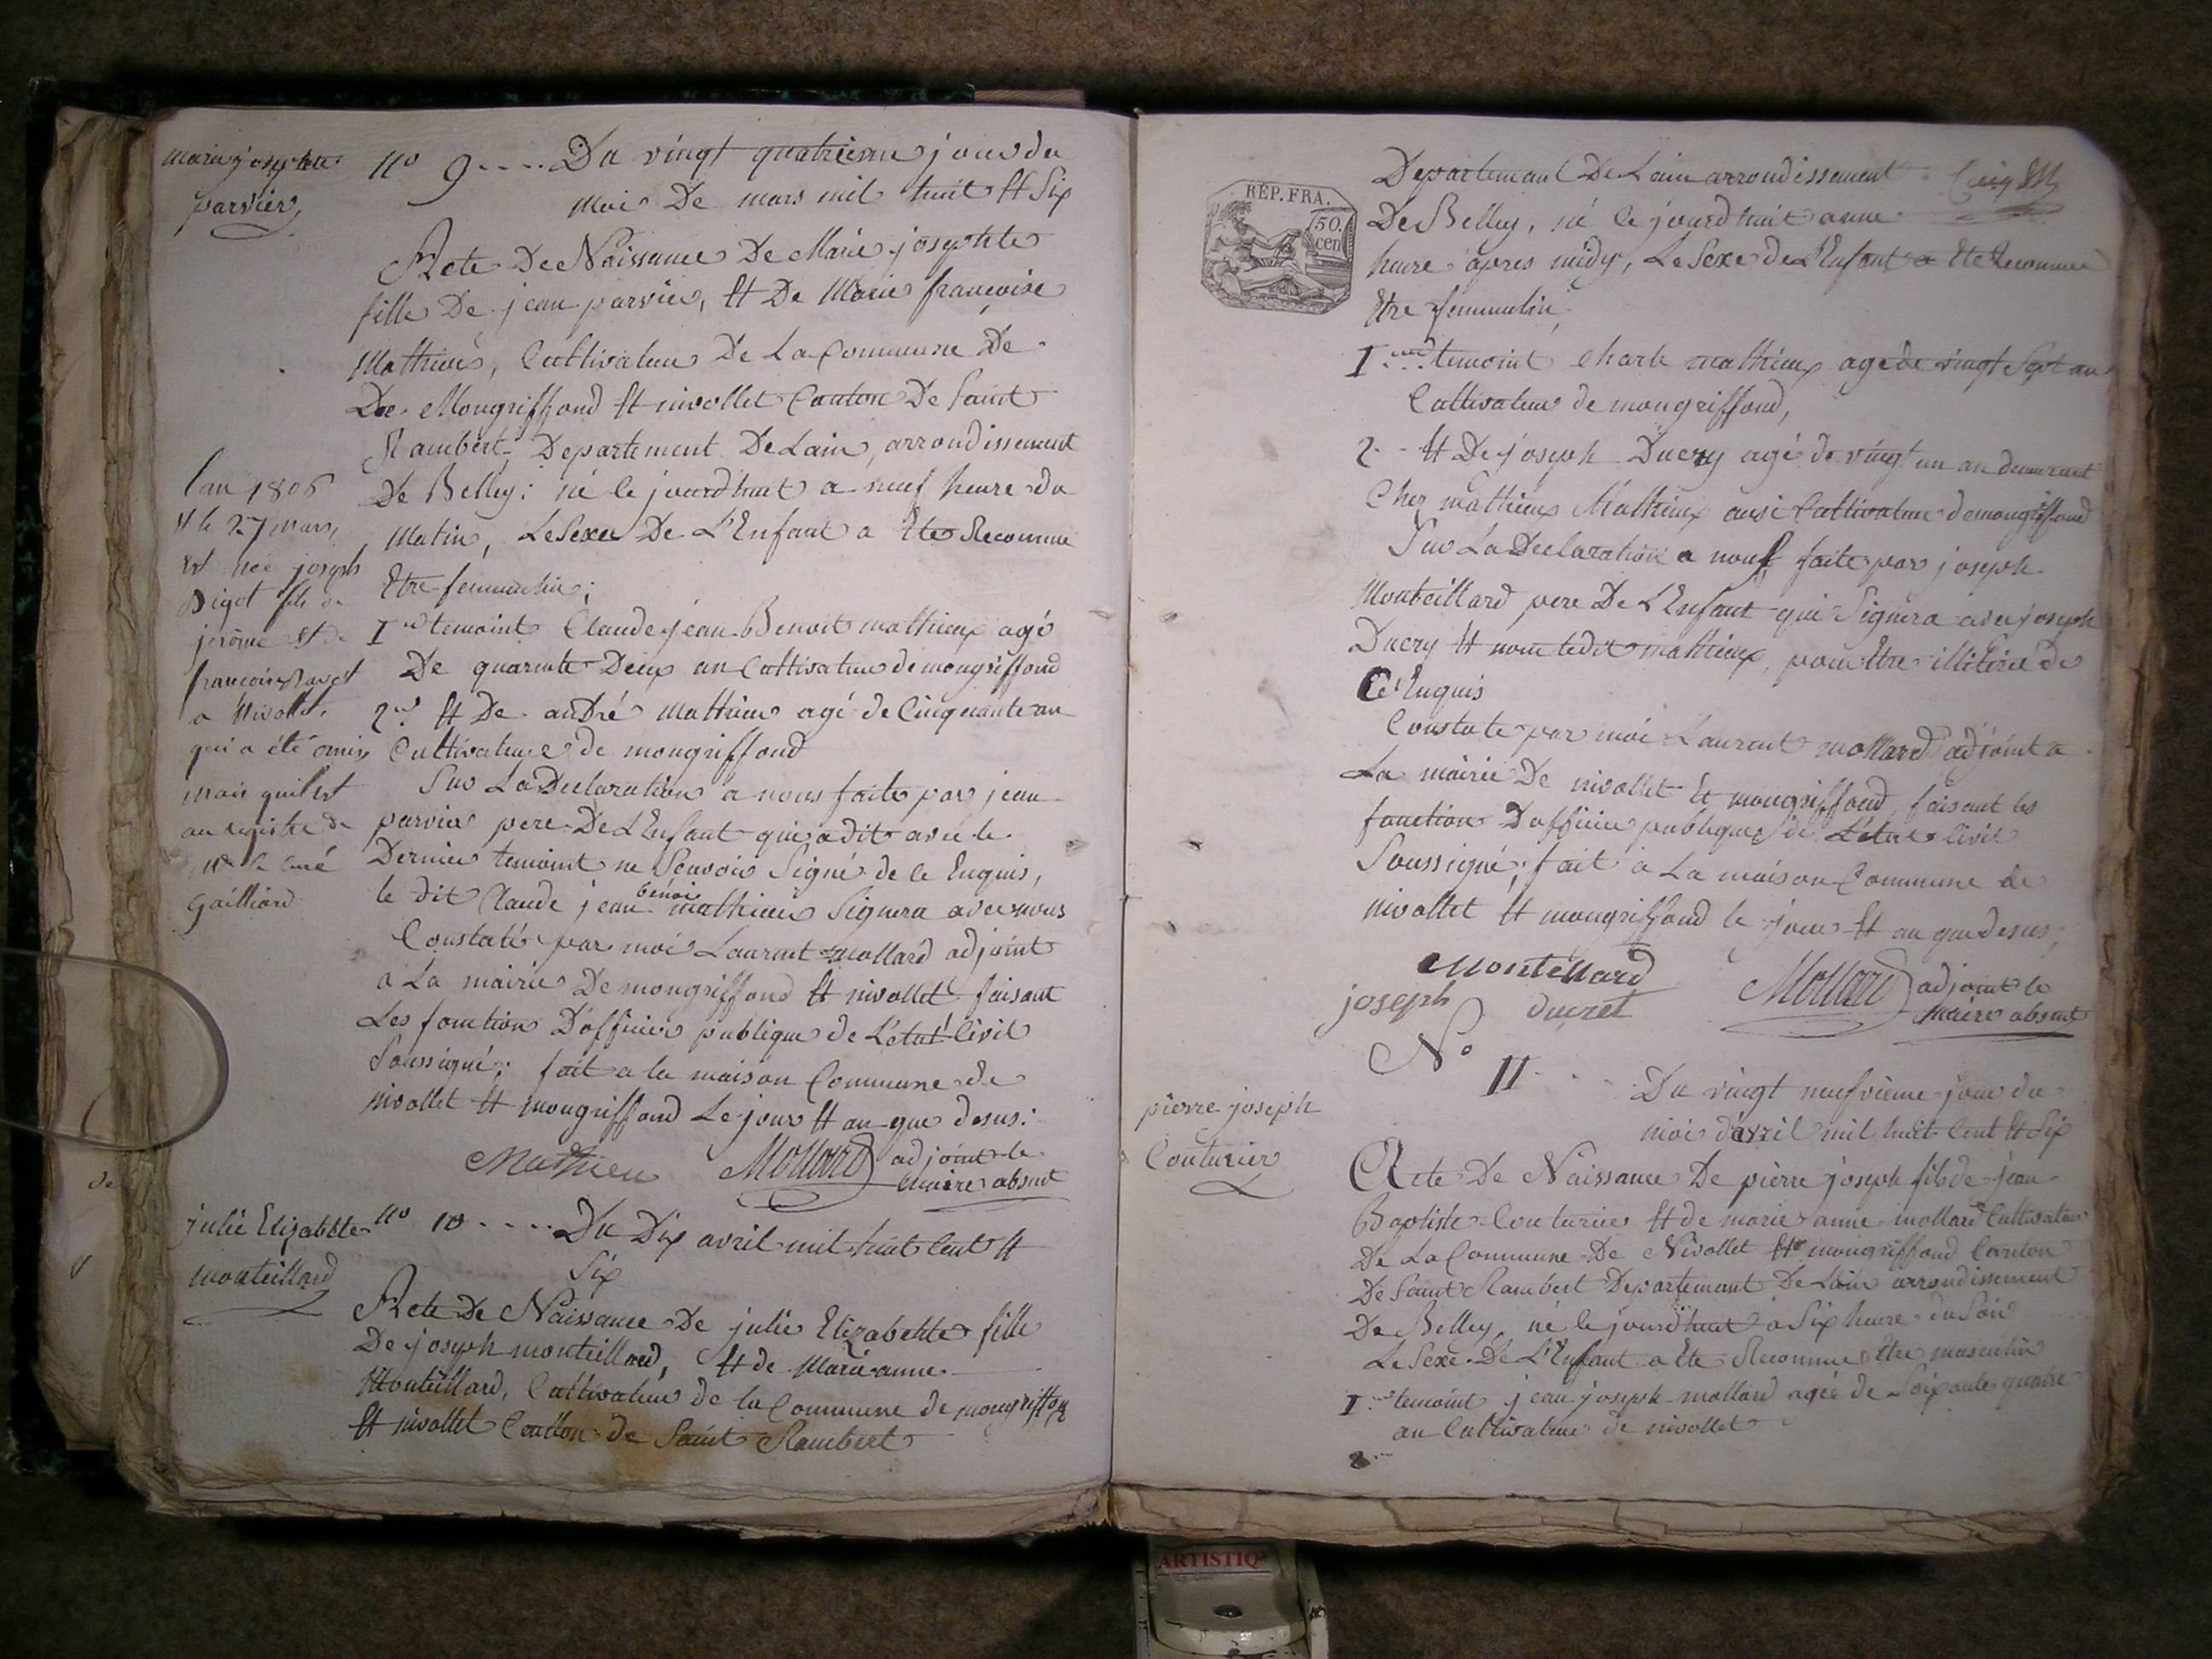 marie josephte
parvier
n° 9 .... Du vingt quatrieme jour du
moi De mars mil huit Et Six
Acte De Naissance De Marie josephte
fille De jean parvier, Et De Marie françoise
Mathieu, Cultivateur De La Commune De
De Mongriffond Et nivollet Canton De Saint
Rambert, Departement De Lain, arrondissement
De Belley: né le jourdhuit a neuf heure du
Matin, Le Sexe De L'Enfant a Ete Reconnue
Etre femmelin;
I.er temoint Claude jean Benoit mathieux agé
De quarente Deux an Cultivateur de mongriffond
2.nd Et De andré Mathieu agé de Cinquante an
Cultivateur de mongriffond
Sur La Declaration a nous faite par jean
parvier pere De L'Enfant qui a dit avec le
Dernier temoint ne Scavoir Signé de ce Enquis,
le dit Claude jean benoi mathieu Signera avec nous
Constaté par moi Laurent mollard adjoint
a La mairie De mongriffond Et nivollet faisant
Les fonction D'officier publique de L'etat Civil
Soussigné; fait a la maison Commune de
nivollet Et mongriffond Le jour Et an que desus:
Mathieu Mollard adjoint le
maire absent
l'an 1806
et le 27 mars
est née joseph
Bigot fils de
jerôme et de
francoise
a Nivollet,
qui a été omis
mais quil est
au registre de
Mr le curé
Gailliard
julie Elizabette
monteillard
n° 10 .... Du Dix avril mil huit Cent Et
Six
Acte De Naissance De julie Elizabette fille
De joseph monteillard, Et de Marie anne
Monteillard, Cultivateur de la Commune de mongriffon
Et nivollet Canton de Saint Rambert
REP. FRA.
50.
cen
Departemant De Lain arrondissement
De Belley, né le jourdhuit a une
heure apres midy, Le Sexe de L'Enfant a Ete Reconnue
Etre femmelin,
I.er temoint Charle mathieux agé de vingt Sept an
Cultivateur de mongriffond,
2 .. Et De joseph Ducry agé de vingt un an demeurant
Chez mathieux Mathieux ausi Cultivateur de mongriffond
Sur La Declaration a nous faite par joseph
Monteillard pere De L'Enfant qui Signera avec joseph
Ducry Et nom ledit mathieux, pour Etre illitéré de
Ce Enquis
Constate par moi Laurent mollard adjoint a
La mairie De nivollet Et mongriffond, faisant les
fonction D'officier publique de L'état Civil
Soussigné; fait a La maison Commune de
nivollet Et mongriffond le jour Et an que desus;
Montellard
joseph ducret Mollard adjoint le
maire absent
pierre joseph
Couturier
N° 11 .... Du vingt neufvieme jour du
moi d'avril mil huit Cent Et Six
Acte De Naissance De pierre joseph fils de jean
Baptiste Couturier Et de marie anne mollard Cultivateur
De La Commune De Nivollet Et mongriffond Canton
De Saint Rambert Departemant De Lain arrondissement
De Belley, né le jourdhuit a Six heure du Soir
Le Sexe De L'Enfant a Ete Reconnue Etre masculin
I.er temoint jean joseph mollard agée de Soixante quatre
an Cultivateur de nivollet
2 ...
ARTISTIQ